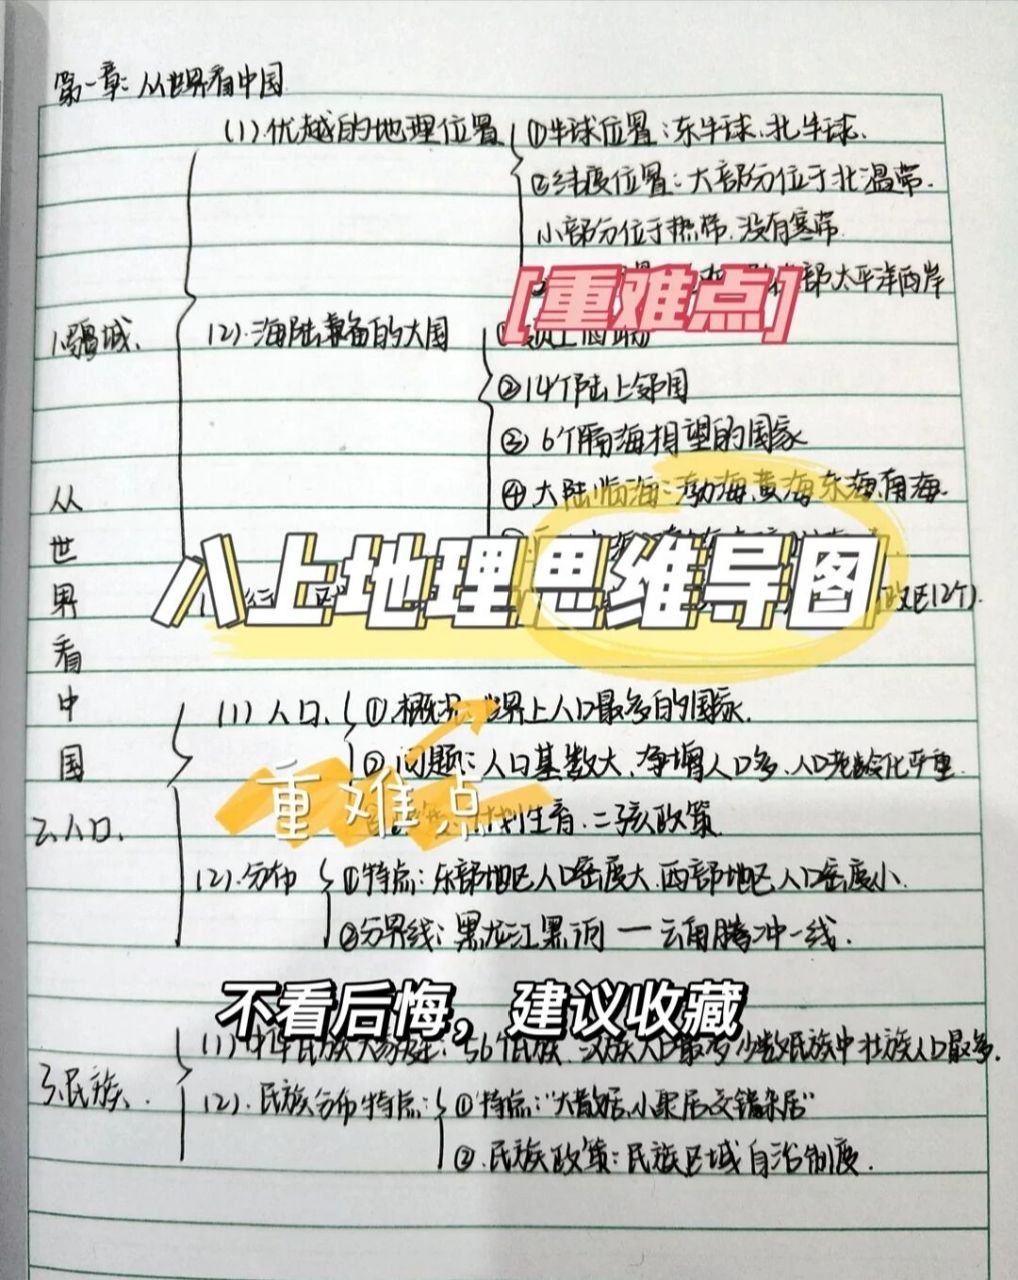 第一章：从世界看中国
从世界看中国
1.疆域.
(1).优越的地理位置
①半球位置：东半球、北半球.
②纬度位置：大部分位于北温带.
小部分位于热带.没有寒带.
部太平洋西岸
[重难点]
(2).海陆兼备的大国
②14个陆上邻国
③6个隔海相望的国家
④大陆临海：渤海.黄海.东海.南海.
八上地理思维导图
政区12个).
2.人口.
(1)人口.
①.概况：世界上人口最多的国家.
②问题：人口基数大、净增人口多、人口老龄化严重.
重难点
计划生育.二孩政策.
(2).分布
①特点：东部地区人口密度大.西部地区人口密度小.
②分界线：黑龙江黑河一云南腾冲一线.
不看后悔，建议收藏
3.民族.
(1)中华民族大家庭：56个民族.汉族人口最多.少数民族中壮族人口最多.
(2).民族分布特点：
①特点：“大散居、小聚居交错杂居”
②.民族政策：民族区域自治制度.